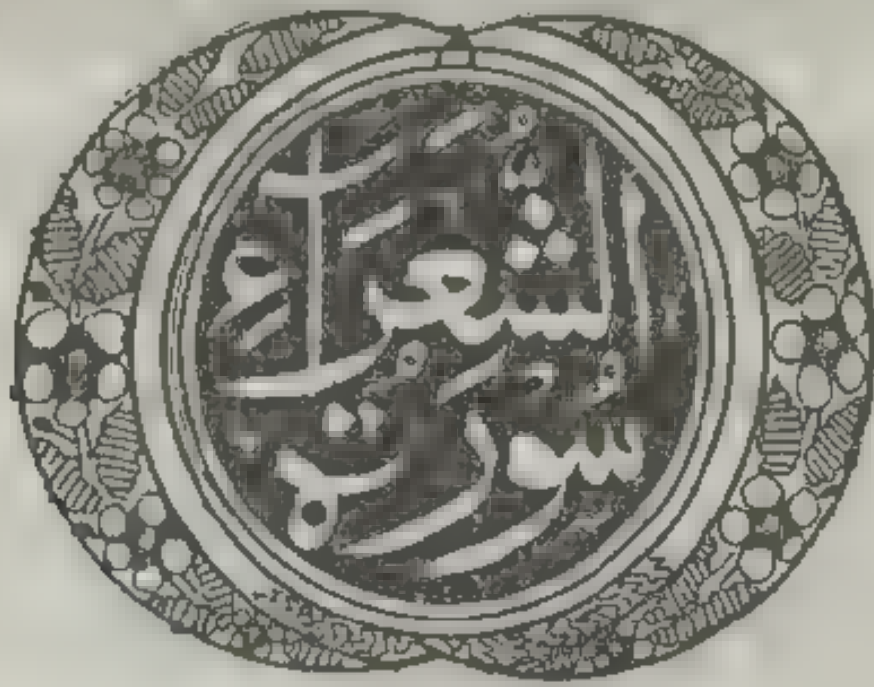 سورة
الشعراء